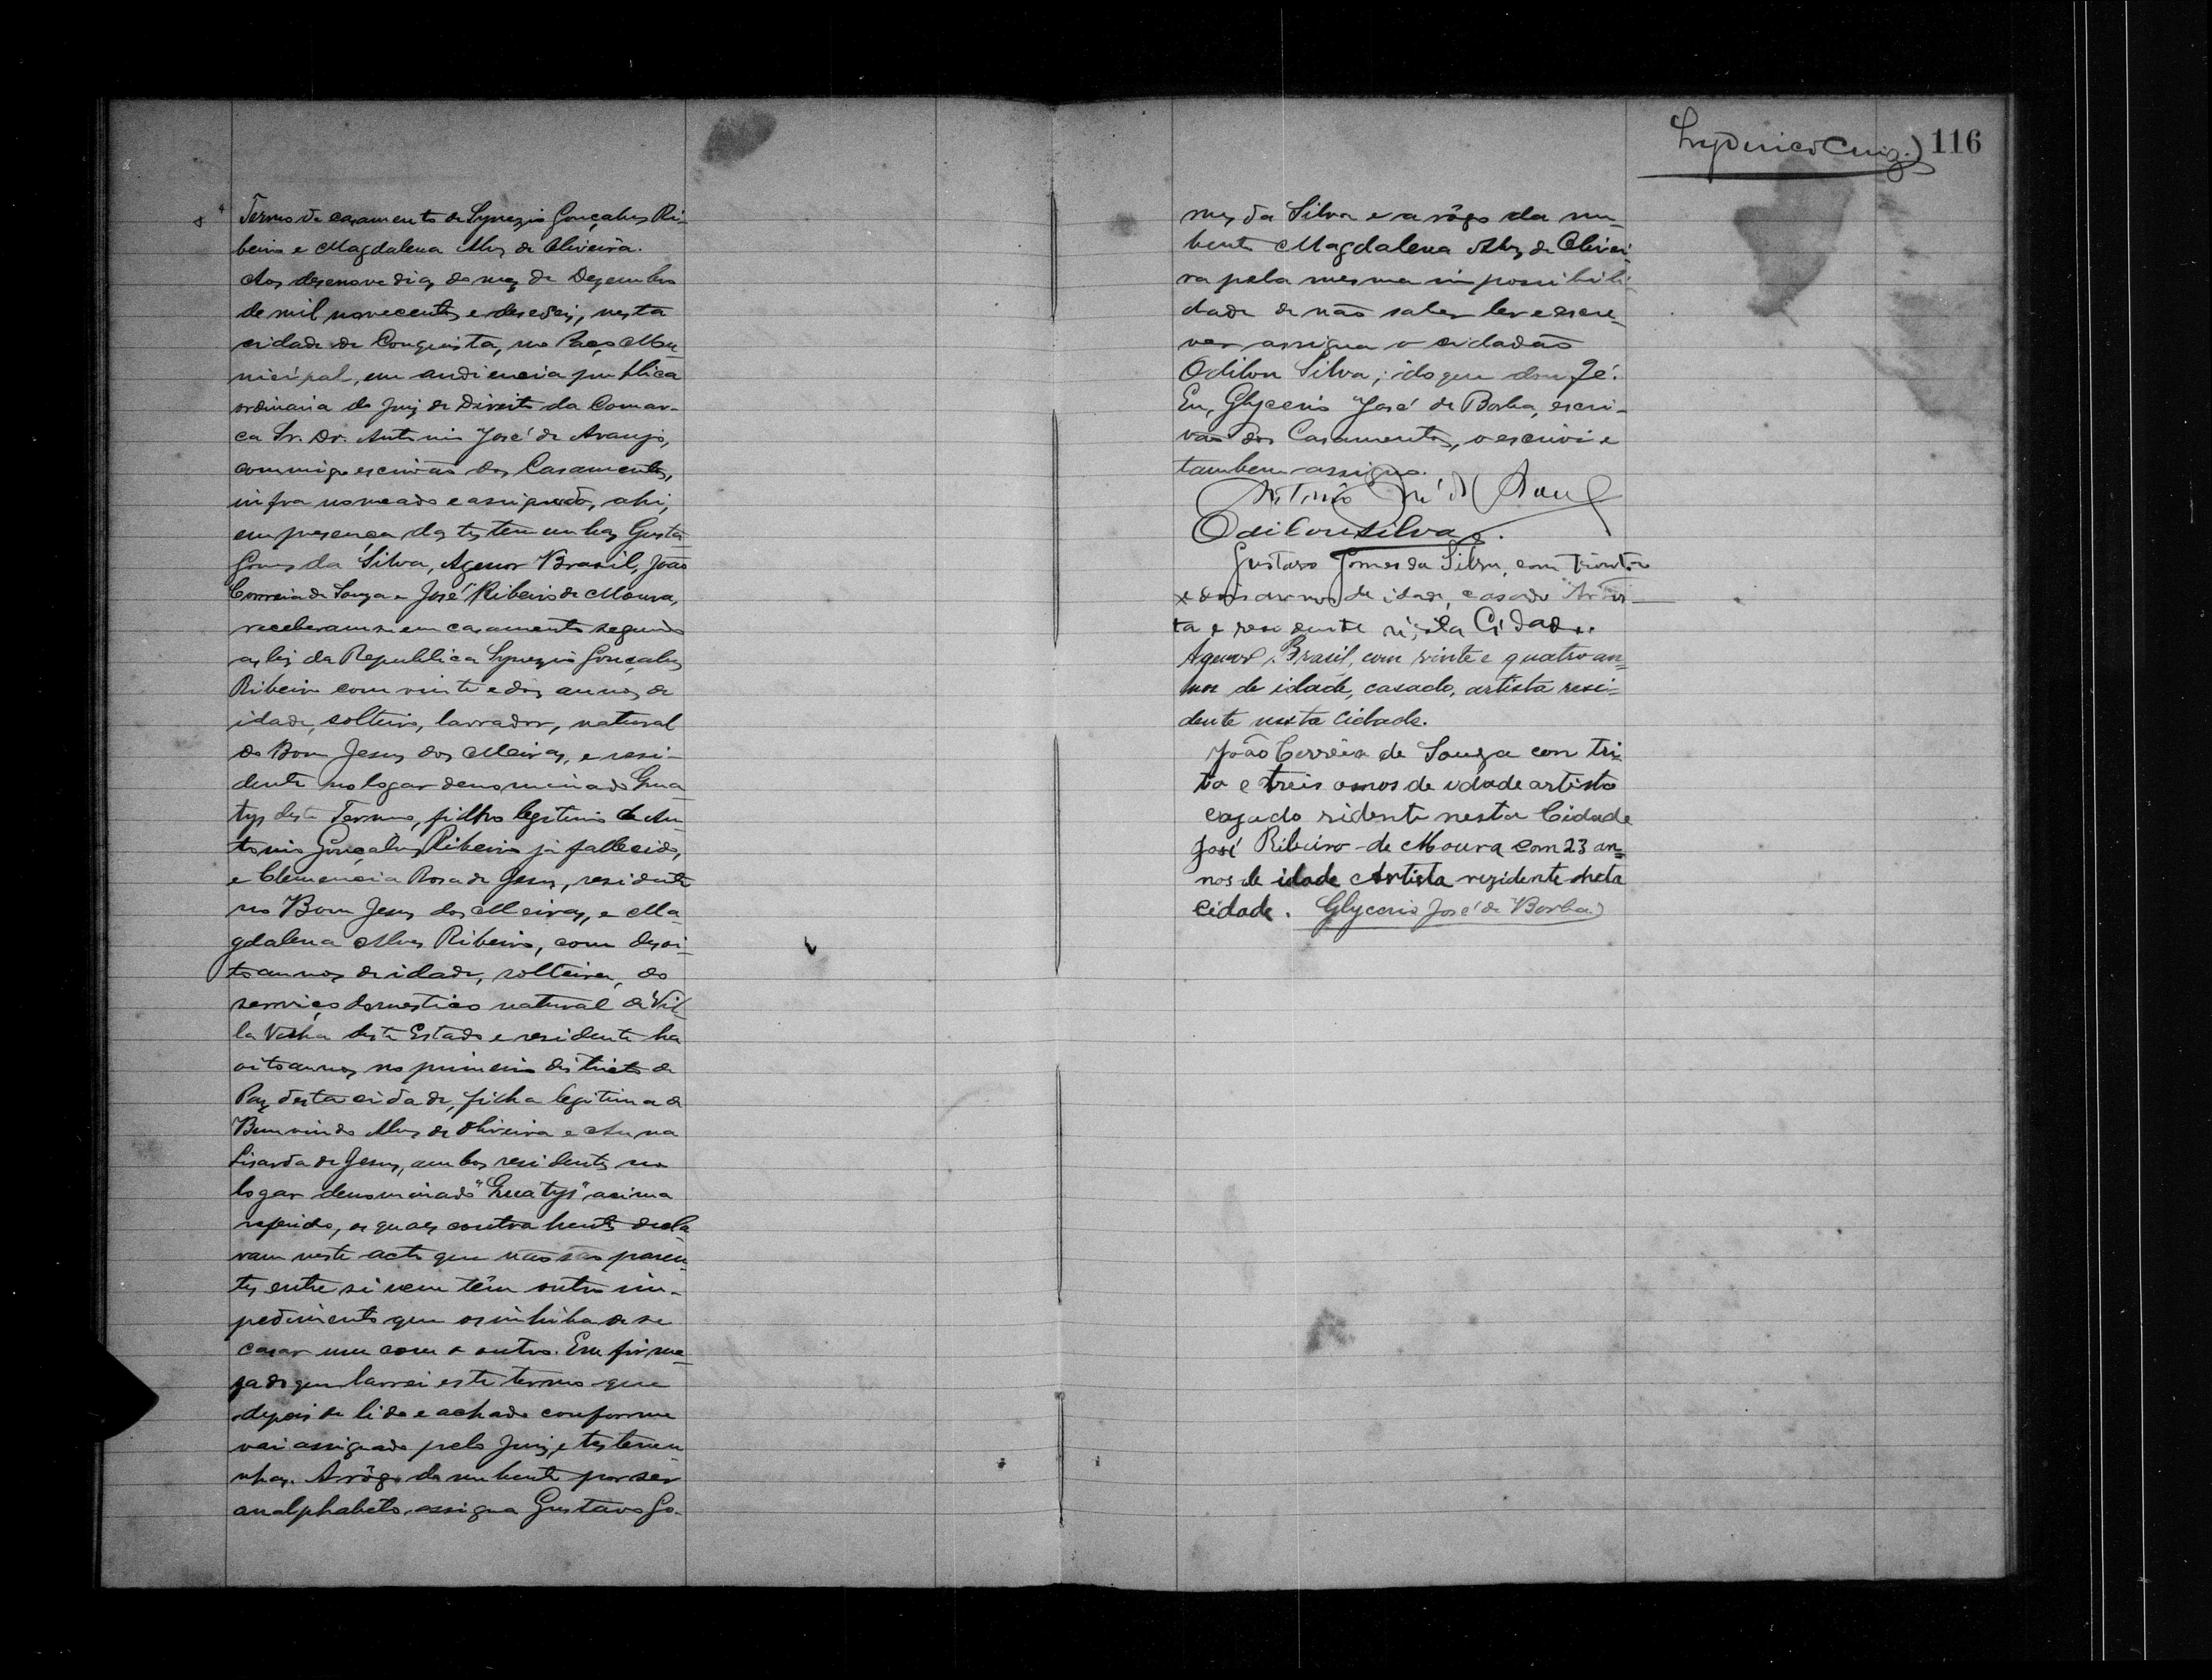 Termo de casamento de Synezio Gonçalves Ri-
beiro e Magdalena Alvs de Oliveira.
Aos desenove dias do mez de Dezembro
de mil novecentos e deseseis, nesta
cidade de Conquista, no Paço Mu
nicipal, em audiencia publica
ordinaria do Juiz de Direito da Comar-
ca Sr. Dr. Antonio José de Araujo,
commigo escrivão dos Casamentos,
infra nomeado e assignado, ahi,
em presença das testemunhas Gusta
Gomes da Silva, Agenor Brasil, João
Correia de Souza e José Ribeiro de Moura,
receberam-se em casamento segundo
as leis da Republica Synezio Gonçalves
Ribeiro com vinte e dois annos de
idade, solteiro, lavrador, natural
do Bom Jesus dos Meiras, e resi-
dente no logar denominado Gua-
tys deste Termo, filho legitimo de An-
tonio Gonçalves Ribeiro já fallecido,
e Clemencia Rosa de Jesus, residente
no Bom Jesus dos Meiras, e Ma-
gdalena Alves Ribeiro, com desoi-
to annos de idade, solteira, do
serviço domestico natural da Vil-
la Velha deste Estado e residente ha
oito annos no primeiro districto de
Paz desta cidade, filha legitima de
Bemvindo Alvs de Oliveira e Anna
Lisarda de Jesus, ambos residentes no
logar denominado "Guatys" acima
referido, os quaes contrahentes decla
ram neste acto que não são paren-
tes entre si nem têm outro im-
pedimento que os inhiba de se
casar um com o outro. Em firme-
za do que lavrei este termo que
depois de lido e achado conforme
vai assignado pelo Juiz e testemu
nhas. A rôgo do nubente por ser
analphabeto assigna Gustavo Go-
116
mes da Silva e a rôgo da nu-
bente Magdalena Alvs de Olivei-
ra pela mesma impossibili-
dade de não saber ler e escre-
ver assigna o cidadão
Odilon Silva; do que dou fé.
Eu, Glycerio José de Borba, escri-
vão dos Casamentos, o escrivi e
tambem assigno.
Antonio José de Arauj
Odilon Silva.
Gustavo Gomes da Silva, com trinta
e dois annos de idade, casado Artis-
ta e residente nesta Cidade.
Agenor Brasil, com vinte e quatro an=
nos de idade, casado, artista resi=
dente nesta cidade.
João Corrêia de Souza con tri-
ta e treis anos de idade artista
cazado sidente nesta Cidade
José Ribeiro de Moura com 23 an=
nos de idade Artista rezidente neta
cidade. Glycerio José de Borba